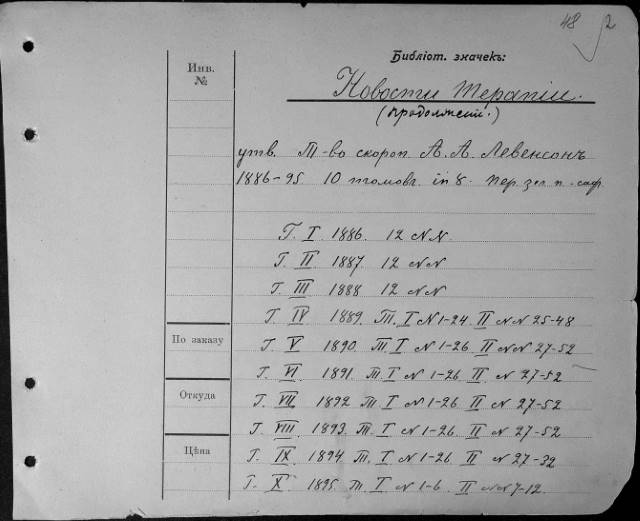 48 2
Библіот. значекъ:
Инв.
№
Новости терапіи.
(продолжен.)
утв. Т-во скороп. А. А. Левенсонъ
1886-95 10 томовъ. in 8. пер. зел. п. саф.
Г. I 1886. 12 NN.
Г. II 1887 12 NN
Г. III 1888 12 NN
Г. IV 1889. Т. I N 1-24. II NN 25-48
По заказу
Г. V 1890. Т. I N 1-26. II NN 27-52
Г. VI 1891. Т. I N 1-26. II N 27-52
Откуда
Г. VII 1892 Т. I N 1-26 II N 27-52
Г. VIII 1893. Т. I N 1-26 II N 27-52
Цѣна
Г. IX 1894. Т. I N 1-26. II N 27-32
Г. X 1895. Т. I N 1-6. II NN 7-12.